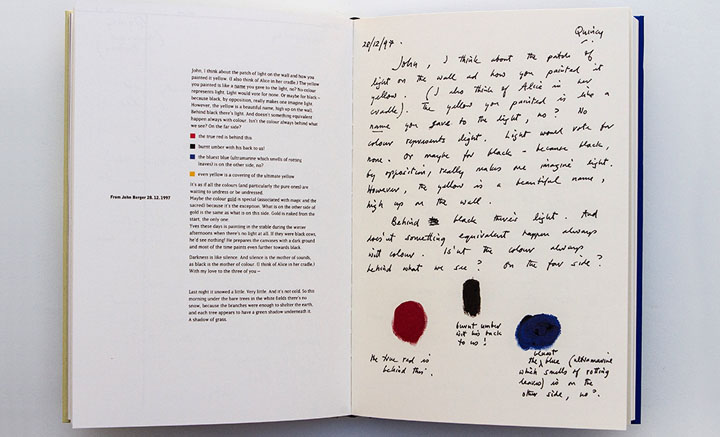 John, I think about the patch of light on the wall and how you
painted it yellow. (I also think of Alice in her cradle.) The yellow
you painted is like a name you gave to the light, no? No colour
represents light. Light would vote for none. Or maybe for black –
because black, by opposition, really makes one imagine light.
However, the yellow is a beautiful name, high up on the wall.
Behind black there's light. And doesn't something equivalent
happen always with colour. Isn't the colour always behind what
we see? On the far side?
the true red is behind this
burnt umber with his back to us!
the bluest blue (ultramarine which smells of rotting
leaves) is on the other side, no?
even yellow is a covering of the ultimate yellow
It's as if all the colours (and particularly the pure ones) are
waiting to undress or be undressed.
Maybe the colour gold is special (associated with magic and the
sacred) because it's the exception. What is on the other side of
gold is the same as what is on this side. Gold is naked from the
start, the only one.
Yves these days is painting in the stable during the winter
afternoons when there's no light at all. If they were black cows,
he'd see nothing! He prepares the canvases with a dark ground
and most of the time paints even further towards black.
Darkness is like silence. And silence is the mother of sounds,
as black is the mother of colour. (I think of Alice in her cradle.)
With my love to the three of you –
Last night it snowed a little. Very little. And it's not cold. So this
morning under the bare trees in the white fields there's no
snow, because the branches were enough to shelter the earth,
and each tree appears to have a green shadow underneath it.
A shadow of grass.
From John Berger 28. 12. 1997
Quincy
28/12/97.
John, I think about the patch of
light on the wall and how you painted it
yellow. (I also think of Alice in her
cradle). The yellow you painted is like a
name you gave to the light, no? No
colour represents light. Light would vote for
none. Or maybe for black – because black,
by opposition, really makes one imagine light.
However, the yellow is a beautiful name,
high up on the wall.
Behind black there's light. And
does'nt something equivalent happen always
with colour. Is'nt the colour always
behind what we see? On the far side?
the true red is
behind this.
burnt umber
with his back
to us!
bluest
the blue (ultramarine
which smells of rotting
leaves) is on the
other side, no?